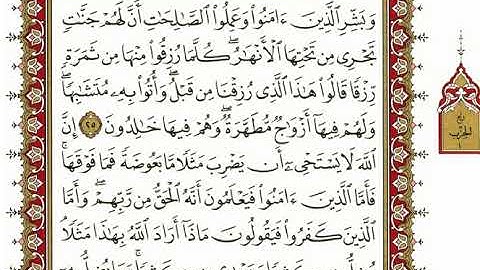 وَبَشِّرِ ٱلَّذِينَ ءَامَنُوا۟ وَعَمِلُوا۟ ٱلصَّـٰلِحَـٰتِ أَنَّ لَهُمْ جَنَّـٰتٍ
تَجْرِى مِن تَحْتِهَا ٱلْأَنْهَـٰرُ ۖ كُلَّمَا رُزِقُوا۟ مِنْهَا مِن ثَمَرَةٍ
رِّزْقًا قَالُوا۟ هَـٰذَا ٱلَّذِى رُزِقْنَا مِن قَبْلُ ۖ وَأُتُوا۟ بِهِۦ مُتَشَـٰبِهًا ۖ
وَلَهُمْ فِيهَآ أَزْوَٰجٌ مُّطَهَّرَةٌ ۖ وَهُمْ فِيهَا خَـٰلِدُونَ ٢٥ إِنَّ
ٱللَّهَ لَا يَسْتَحْىِۦٓ أَن يَضْرِبَ مَثَلًا مَّا بَعُوضَةً فَمَا فَوْقَهَا ۚ
فَأَمَّا ٱلَّذِينَ ءَامَنُوا۟ فَيَعْلَمُونَ أَنَّهُ ٱلْحَقُّ مِن رَّبِّهِمْ ۖ وَأَمَّا
ٱلَّذِينَ كَفَرُوا۟ فَيَقُولُونَ مَاذَآ أَرَادَ ٱللَّهُ بِهَـٰذَا مَثَلًا ۘ
ربع
الحزب